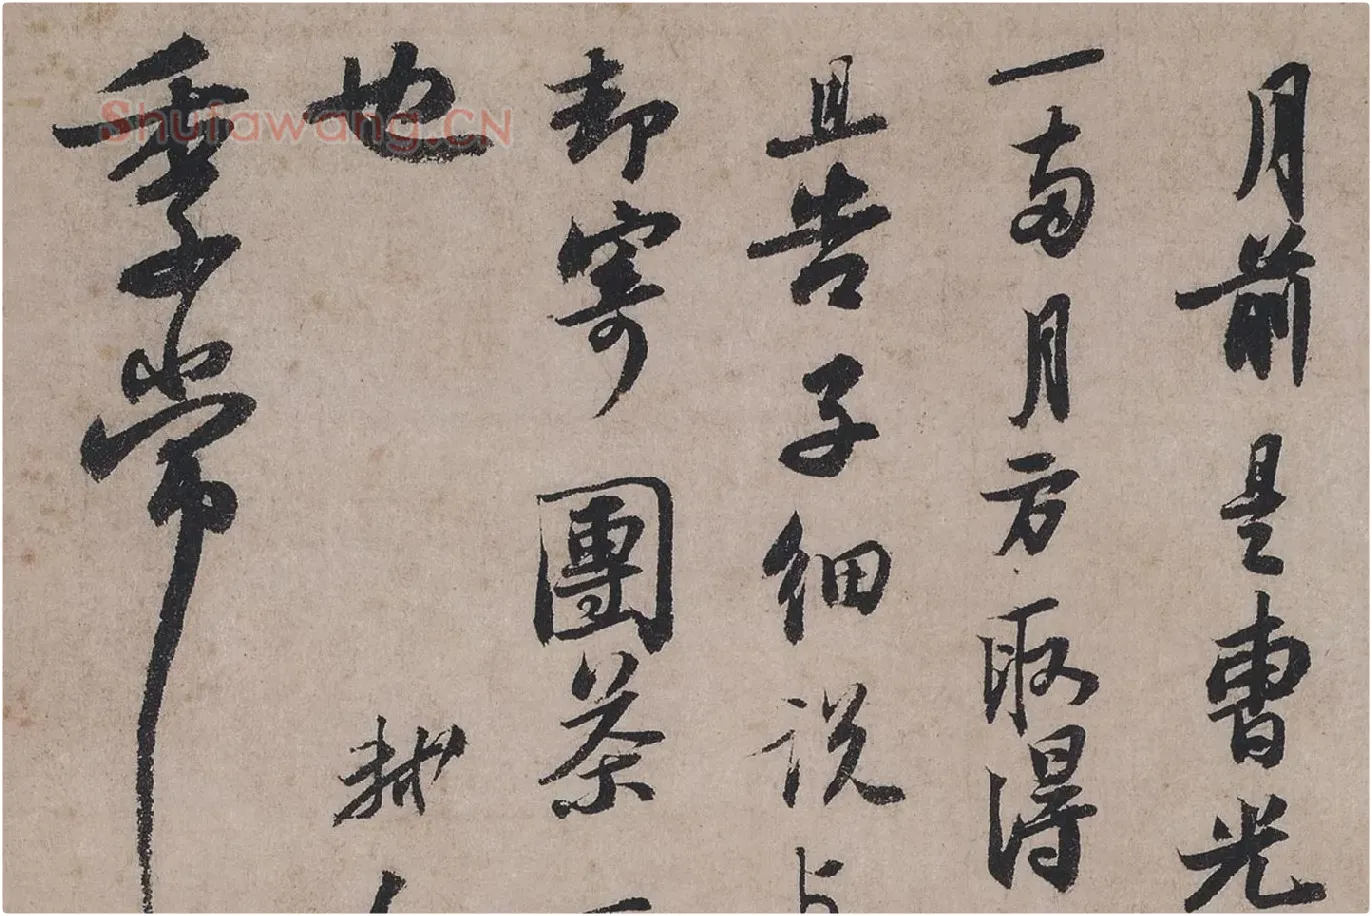 月前是曹光
一兩月方取得
且告子細說與
却寄團茶一
也
軾
季常
Shufawang.CN